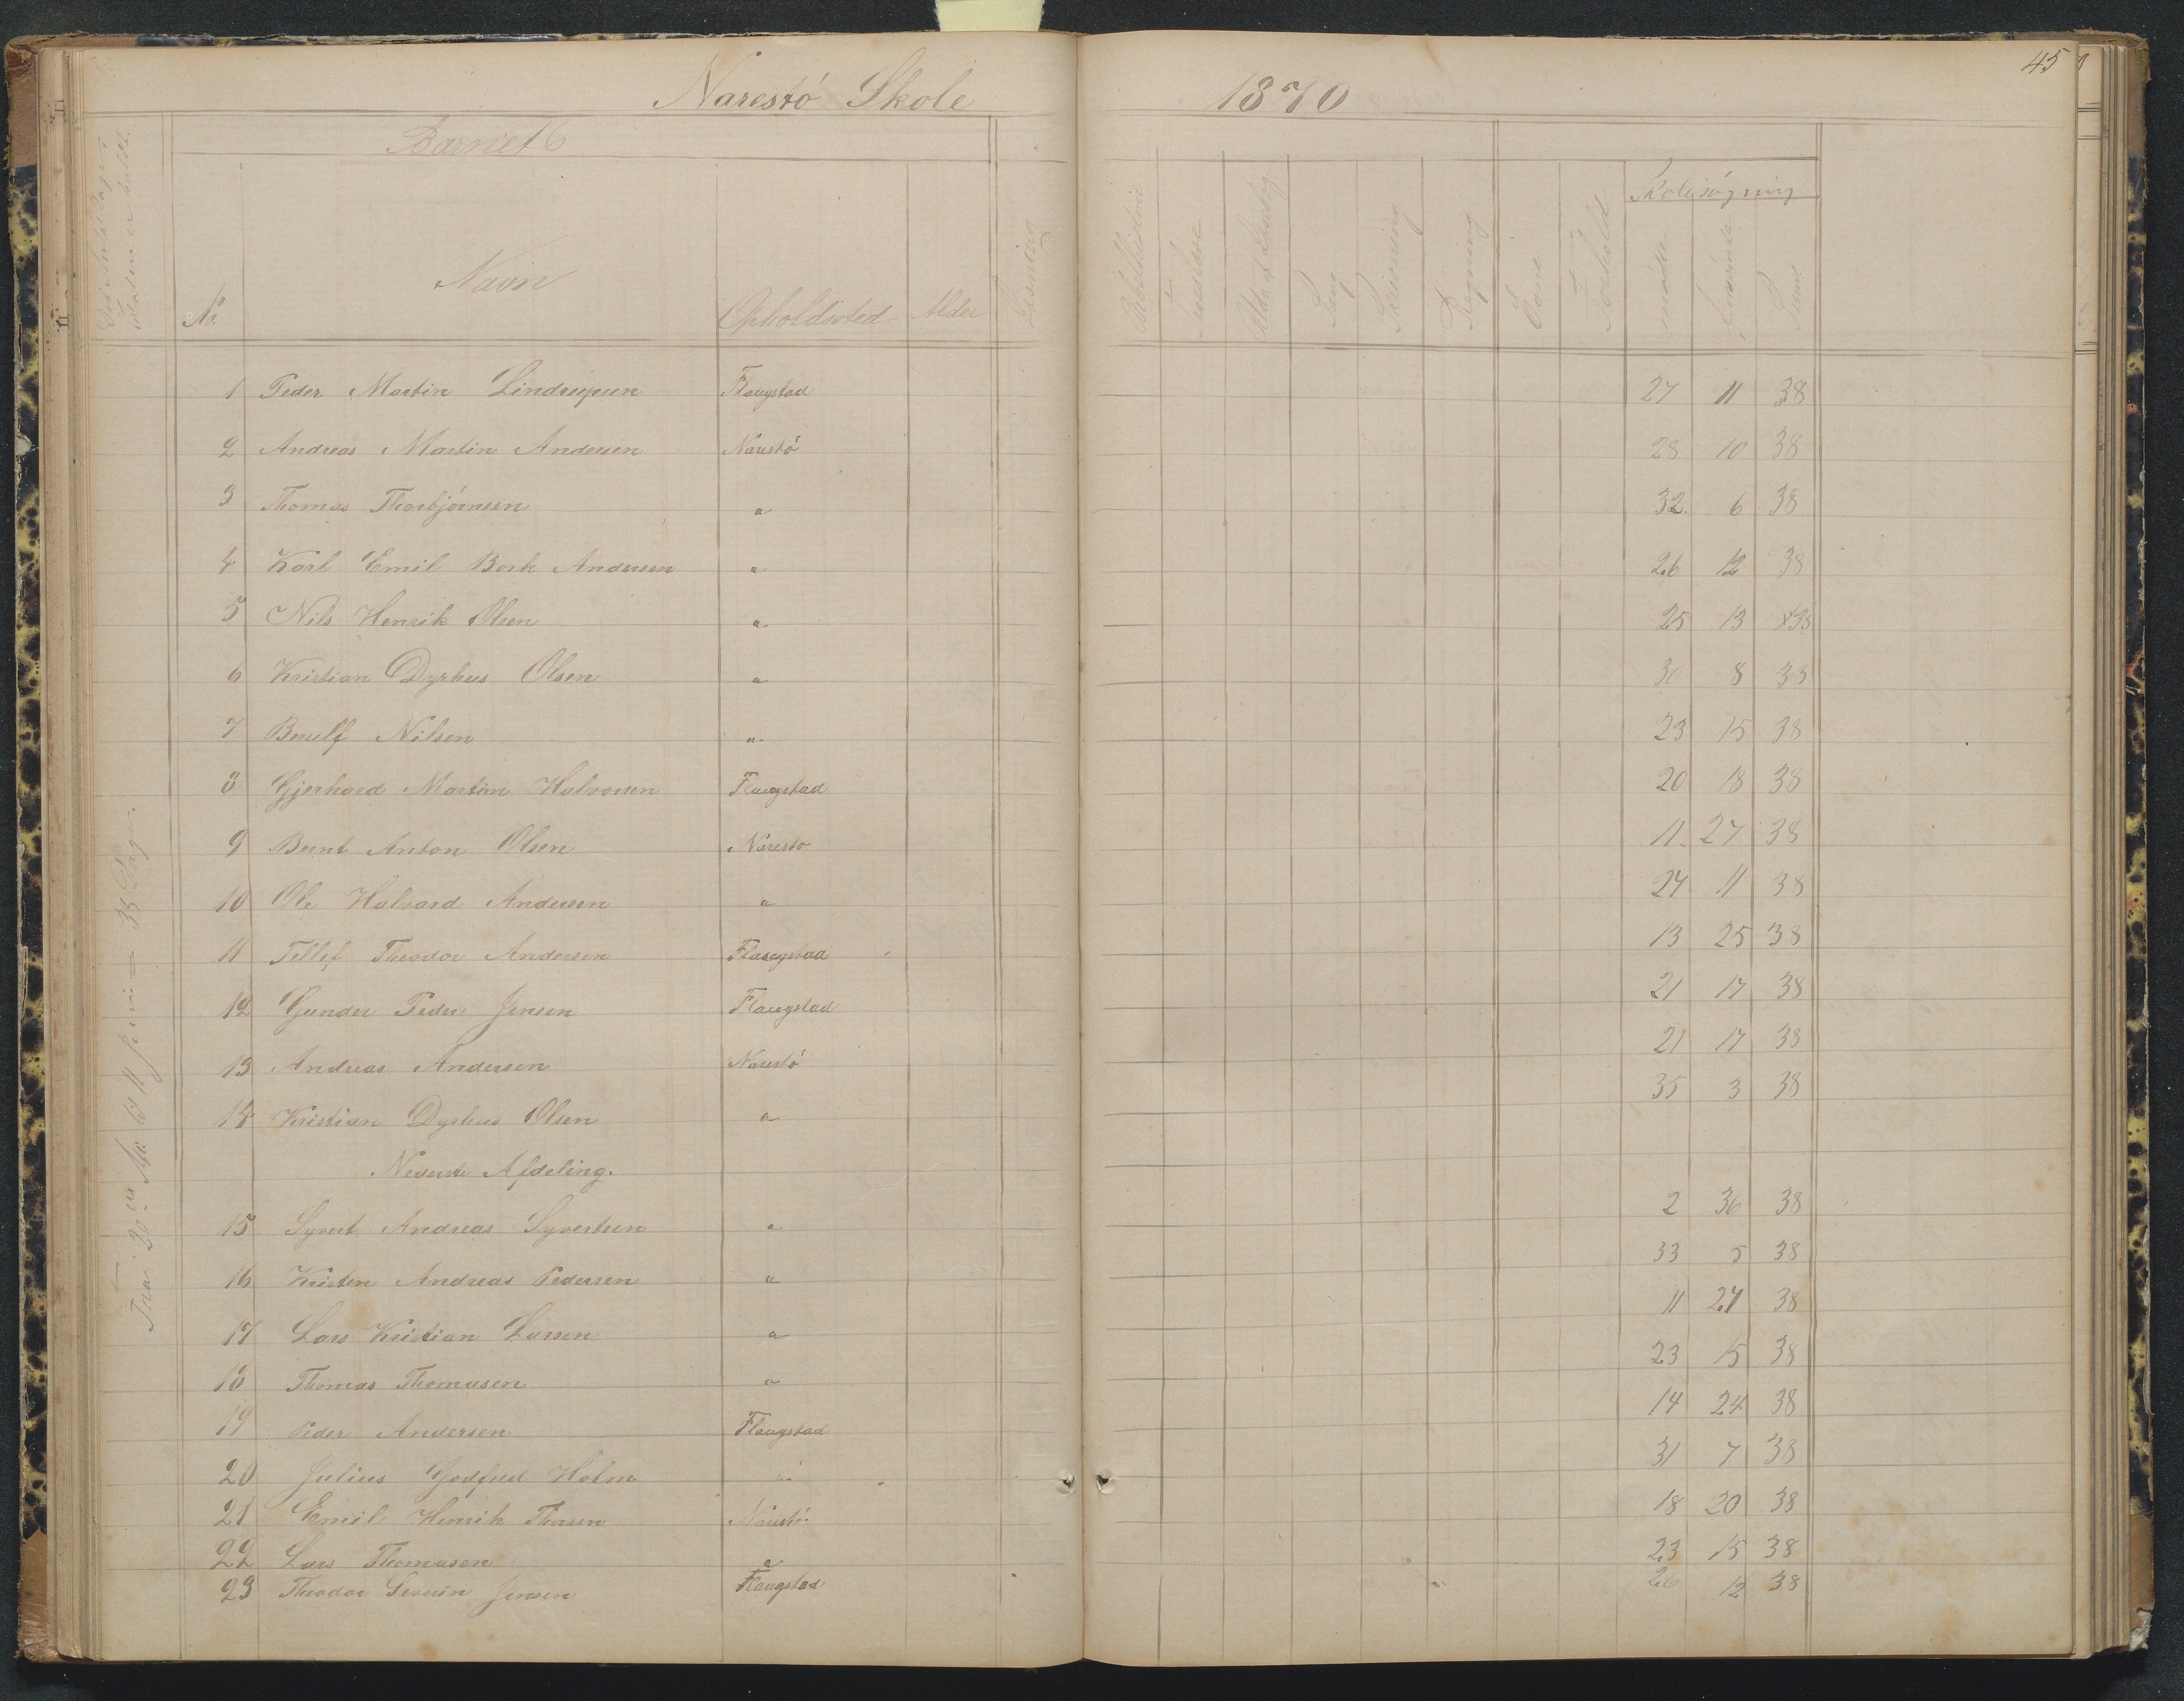 Narestó Skole 1870 45
Barnets
Skolesøgning
No. Navn Opholdssted Alder Læsning Bibelhistorie Troeslære Udv. af Læsebog Sang Skrivning Regning Evne Forhold mødte forsømte Sum
1 Peder Martin Lindrupsen Flaugstad 27 11 38
2 Andreas Martin Andersen Narestó 28 10 38
3 Thomas Thorbjørnsen " 32 6 38
4 Karl Emil Bork Andersen " 26 12 38
5 Nils Henrik Olsen " 25 13 38
6 Kristian Dyrhus Olsen " 30 8 38
7 Berulf Nilsen " 23 15 38
8 Gjerhard Martin Halvorsen Flaugstad 20 18 38
9 Bernt Anton Olsen Naresto 11 27 38
10 Ole Halvard Andersen " 27 11 38
11 Tellef Theodor Andersen Flaugstad 13 25 38
12 Gunder Peder Jensen Flaugstad 21 17 38
13 Andreas Andersen Narestó 21 17 38
14 Kristian Dyrhus Olsen " 35 3 38
Nederste Afdeling.
15 Syvert Andreas Syvertsen " 2 36 38
16 Kristen Andreas Pedersen " 33 5 38
17 Lars Kristian Larsen " 11 27 38
18 Thomas Thomasen " 23 15 38
19 Peder Andersen Flaugstad 14 24 38
20 Julius Godfred Holm " 31 7 38
21 Emil Henrik Thorsen Narestó 18 20 38
22 Lars Thomasen " 23 15 38
23 Theodor Severin Jensen Flaugstad 26 12 38
Fra 30 til 11 Juni = 38 Dage.